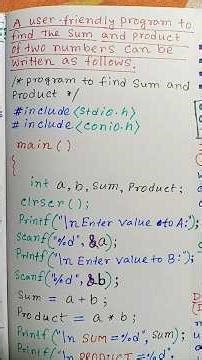 A user-friendly program to
find the sum and product
of two numbers can be
written as follows.
/* program to find sum and
Product */
#include <stdio.h>
#include <conio.h>
main()
{
int a, b, sum, Product;
clrscr();
Printf("\n Enter value to A:");
Scanf("%d", &a);
Printf("\n Enter value to B:");
Scanf("%d", &b);
Sum = a + b;
Product = a * b;
Printf("\n SUM = %d", sum);
Printf("\n PRODUCT = %d",